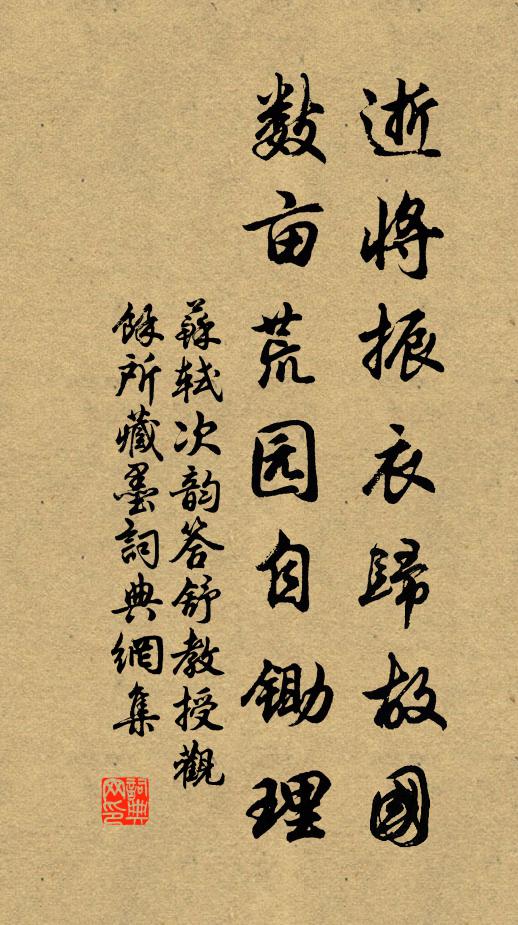 逝將振衣歸故國
数亩荒园自锄理
蘇軾次韵答舒教授觀
餘所藏墨詞典網集
詞典網印